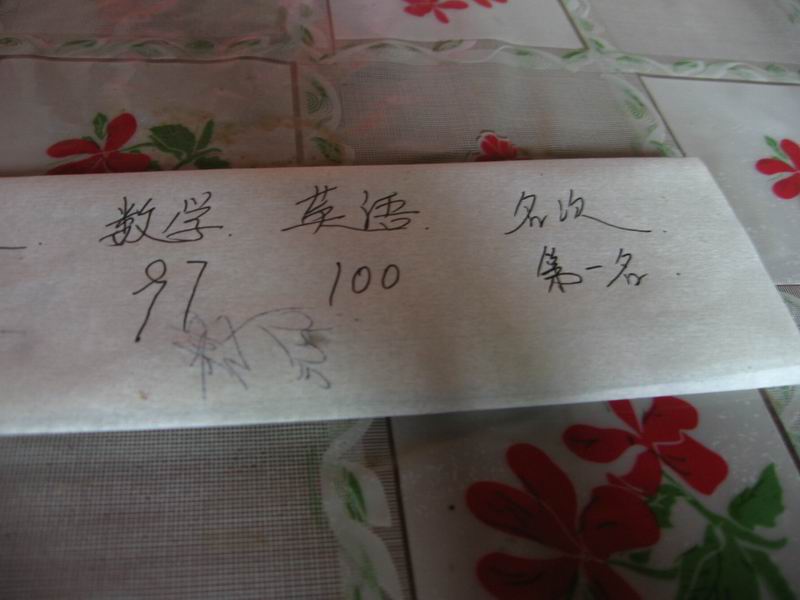 数学. 英语. 名次.
97 100 第一名.